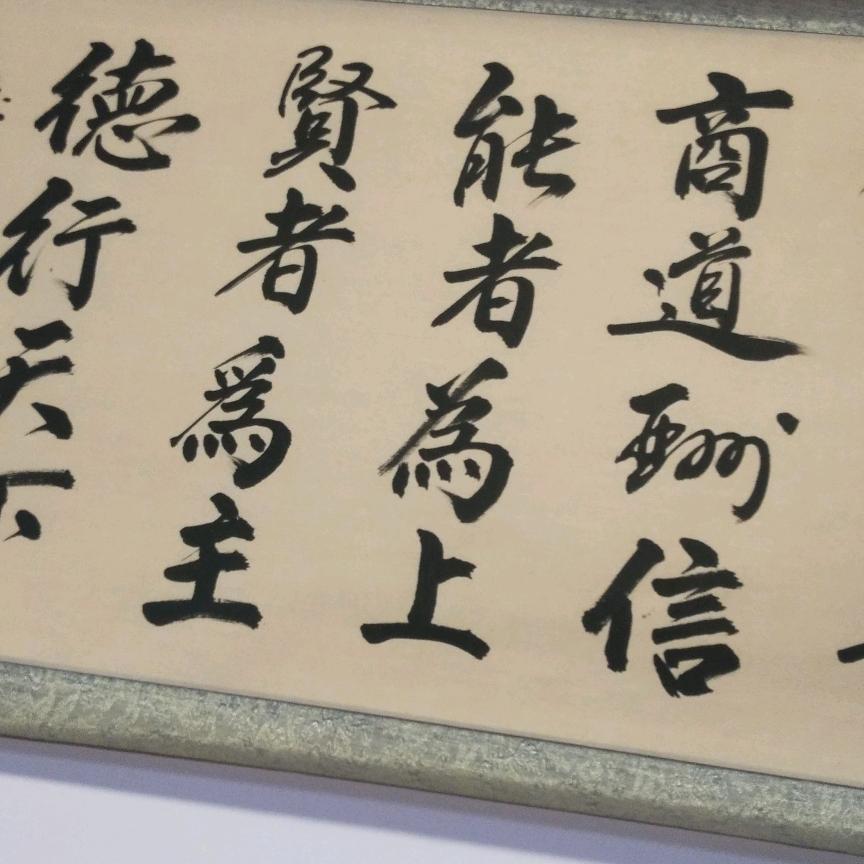 商道酬信
能者為上
賢者為主
德行天下